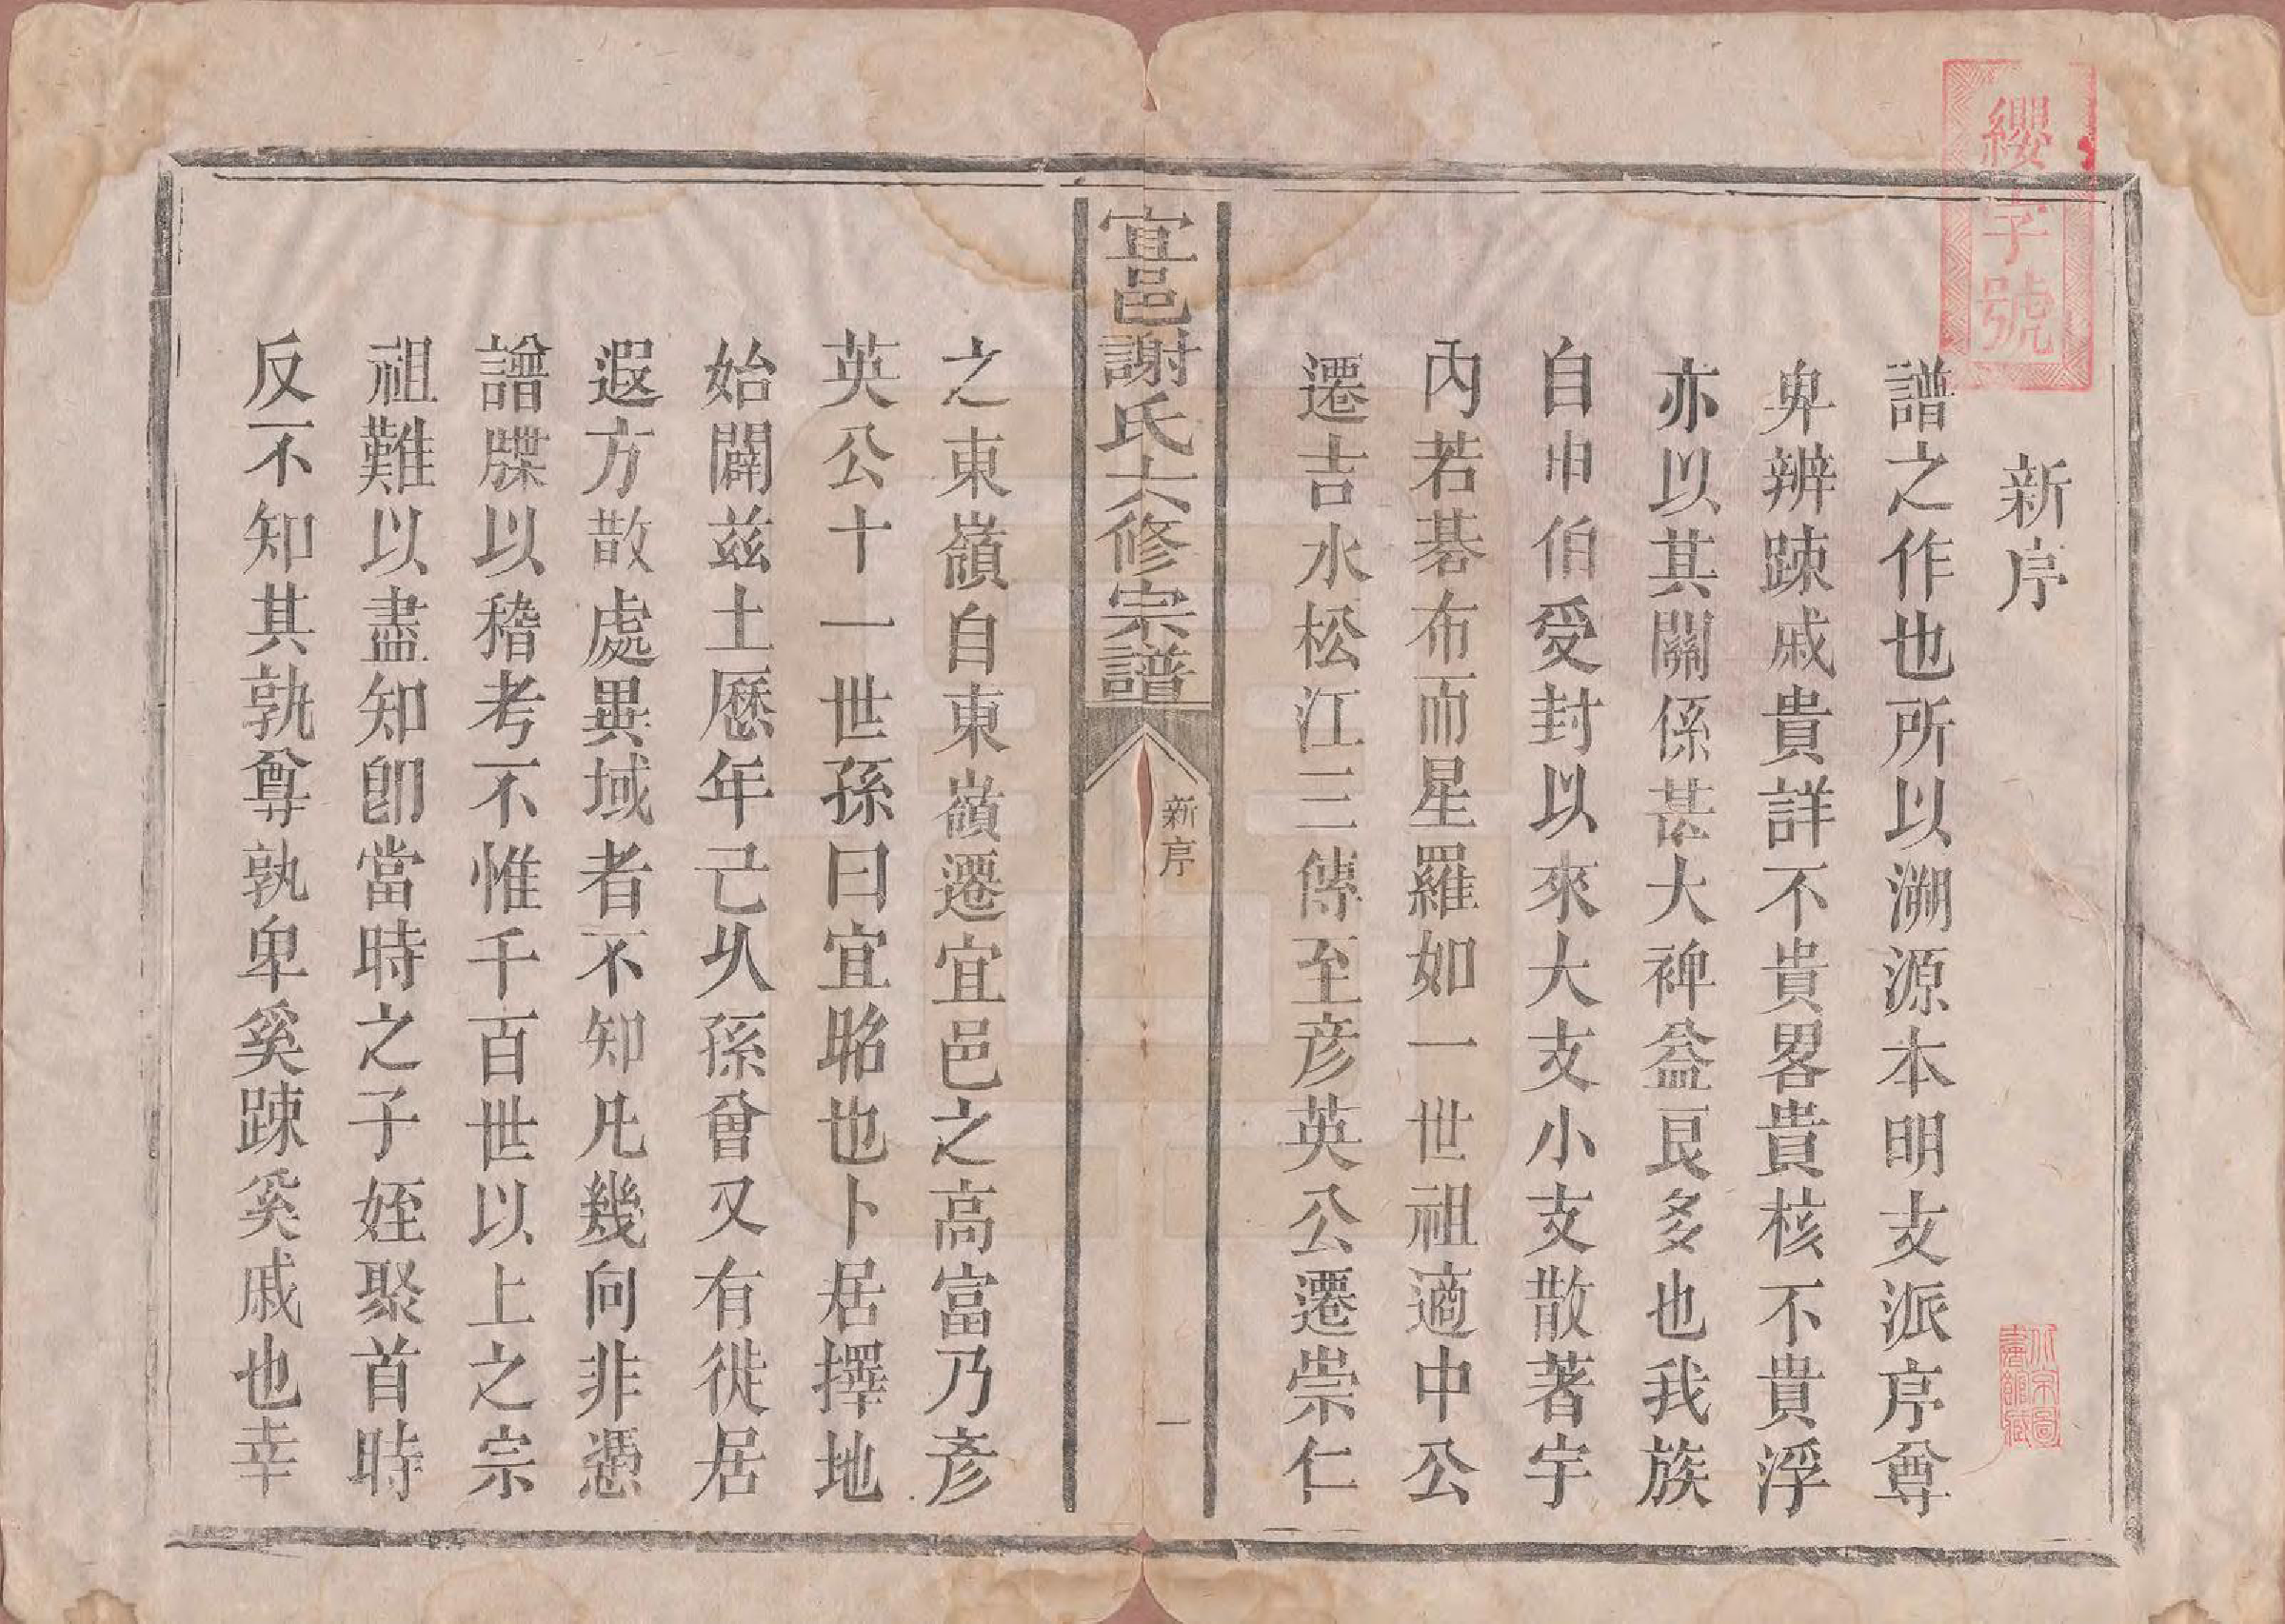 纓字號
新序
譜之作也所以溯源本明支派序尊
卑辨踈戚貴詳不貴畧貴核不貴浮
亦以其關係甚大裨益良多也我族
自申伯受封以來大支小支散著宇
內若碁布而星羅如一世祖適中公
遷吉水松江三傳至彦英公遷崇仁
宜邑謝氏六修宗譜
新序
一
之東嶺自東嶺遷宜邑之高富乃彦
英公十一世孫曰宜昭也卜居擇地
始闢兹土厯年已乆孫曾又有徙居
遐方散處異域者不知凡幾向非憑
譜牒以稽考不惟千百世以上之宗
祖難以盡知卽當時之子姪聚首時
反不知其孰尊孰卑奚踈奚戚也幸